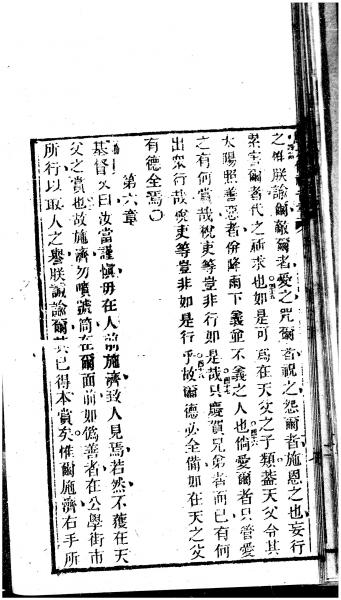 之惟朕諭爾敵爾者愛之咒爾者祝之怨爾者施恩之也妄行
累害爾者代之祈求也如是可為在天父之子類蓋天父令其
太陽照善惡者併降雨下義並不義之人也倘愛爾者只管愛
之有何賞哉稅吏等豈非行如是哉只慶賀兄弟者而已有何
出眾行哉稅吏等豈非如是行乎故爾德必全備如在天之父
有德全焉○
第六章
基督又曰汝當謹慎毋在人前施濟致人見焉若然不獲在天
父之賞也故施濟勿噴號筒在爾面前如偽善者在公學街市
所行以取人之譽朕誠諭爾其已得本賞矣惟爾施濟右手所